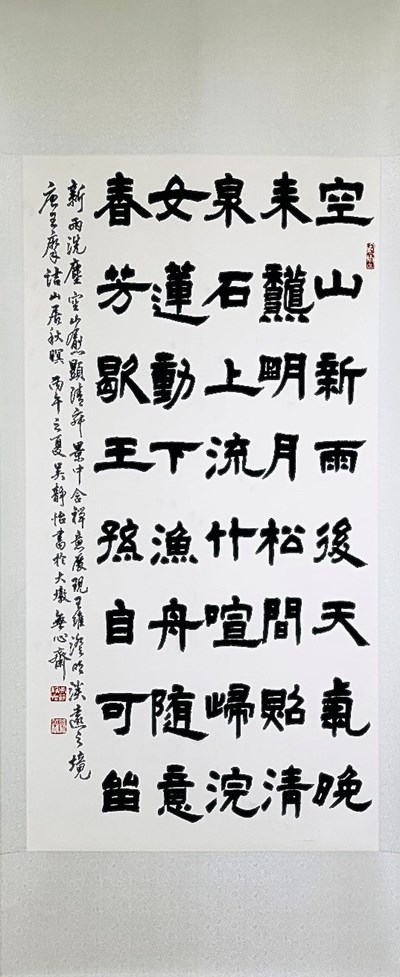 空山新雨後天氣晚
來龝明月松間照清
泉石上流竹喧歸浣
女蓮動下漁舟隨意
春芳歇王孫自可留
新雨洗塵空山愈顯清寂景中含禪意展現王維澄明淡遠之境
唐王摩詰山居秋暝 丙午之夏吳靜怡書於大墩無心齋